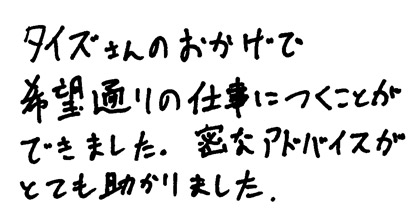 タイズさんのおかげで
希望通りの仕事につくことが
できました. 密なアドバイスが
とても助かりました.